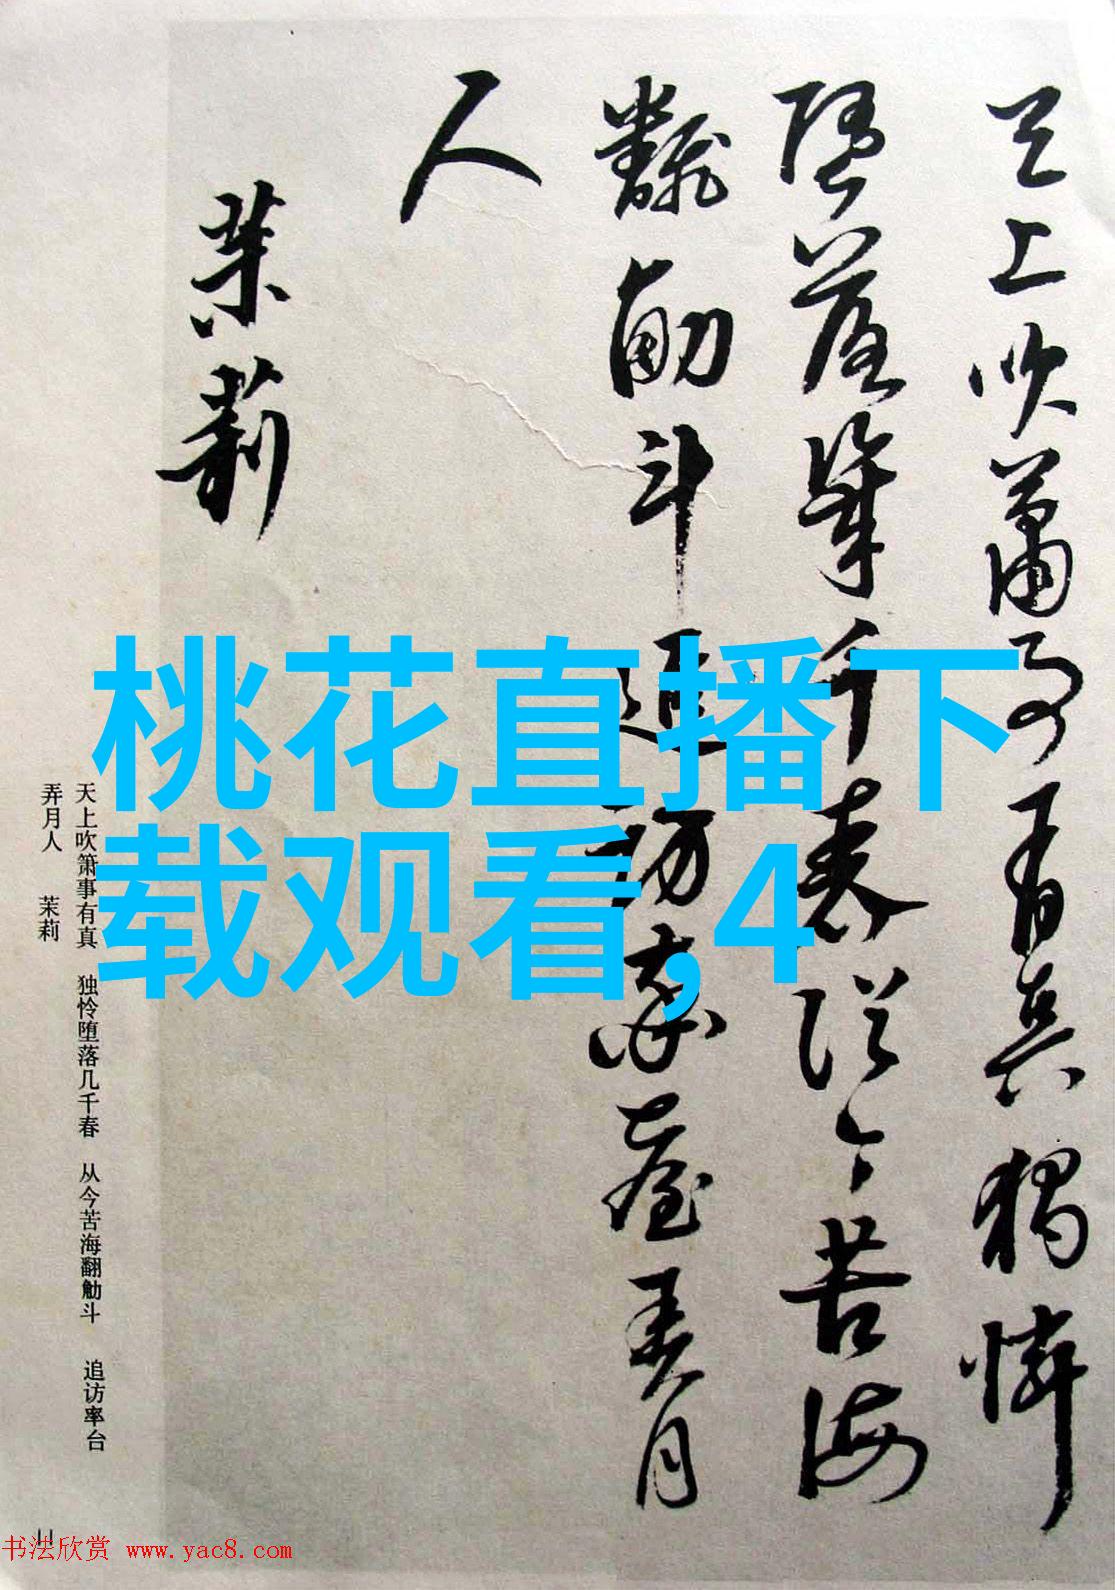 天上吹簫事有真獨憐
墮落幾千春從今苦海
飜觔斗追訪率臺弄月
人
茉莉
桃花直播下
载观看,4
天上吹箫事有真 独怜堕落几千春 从今苦海翻觔斗 追访率台
弄月人 茉莉
11
书法欣赏 www.yac8.com